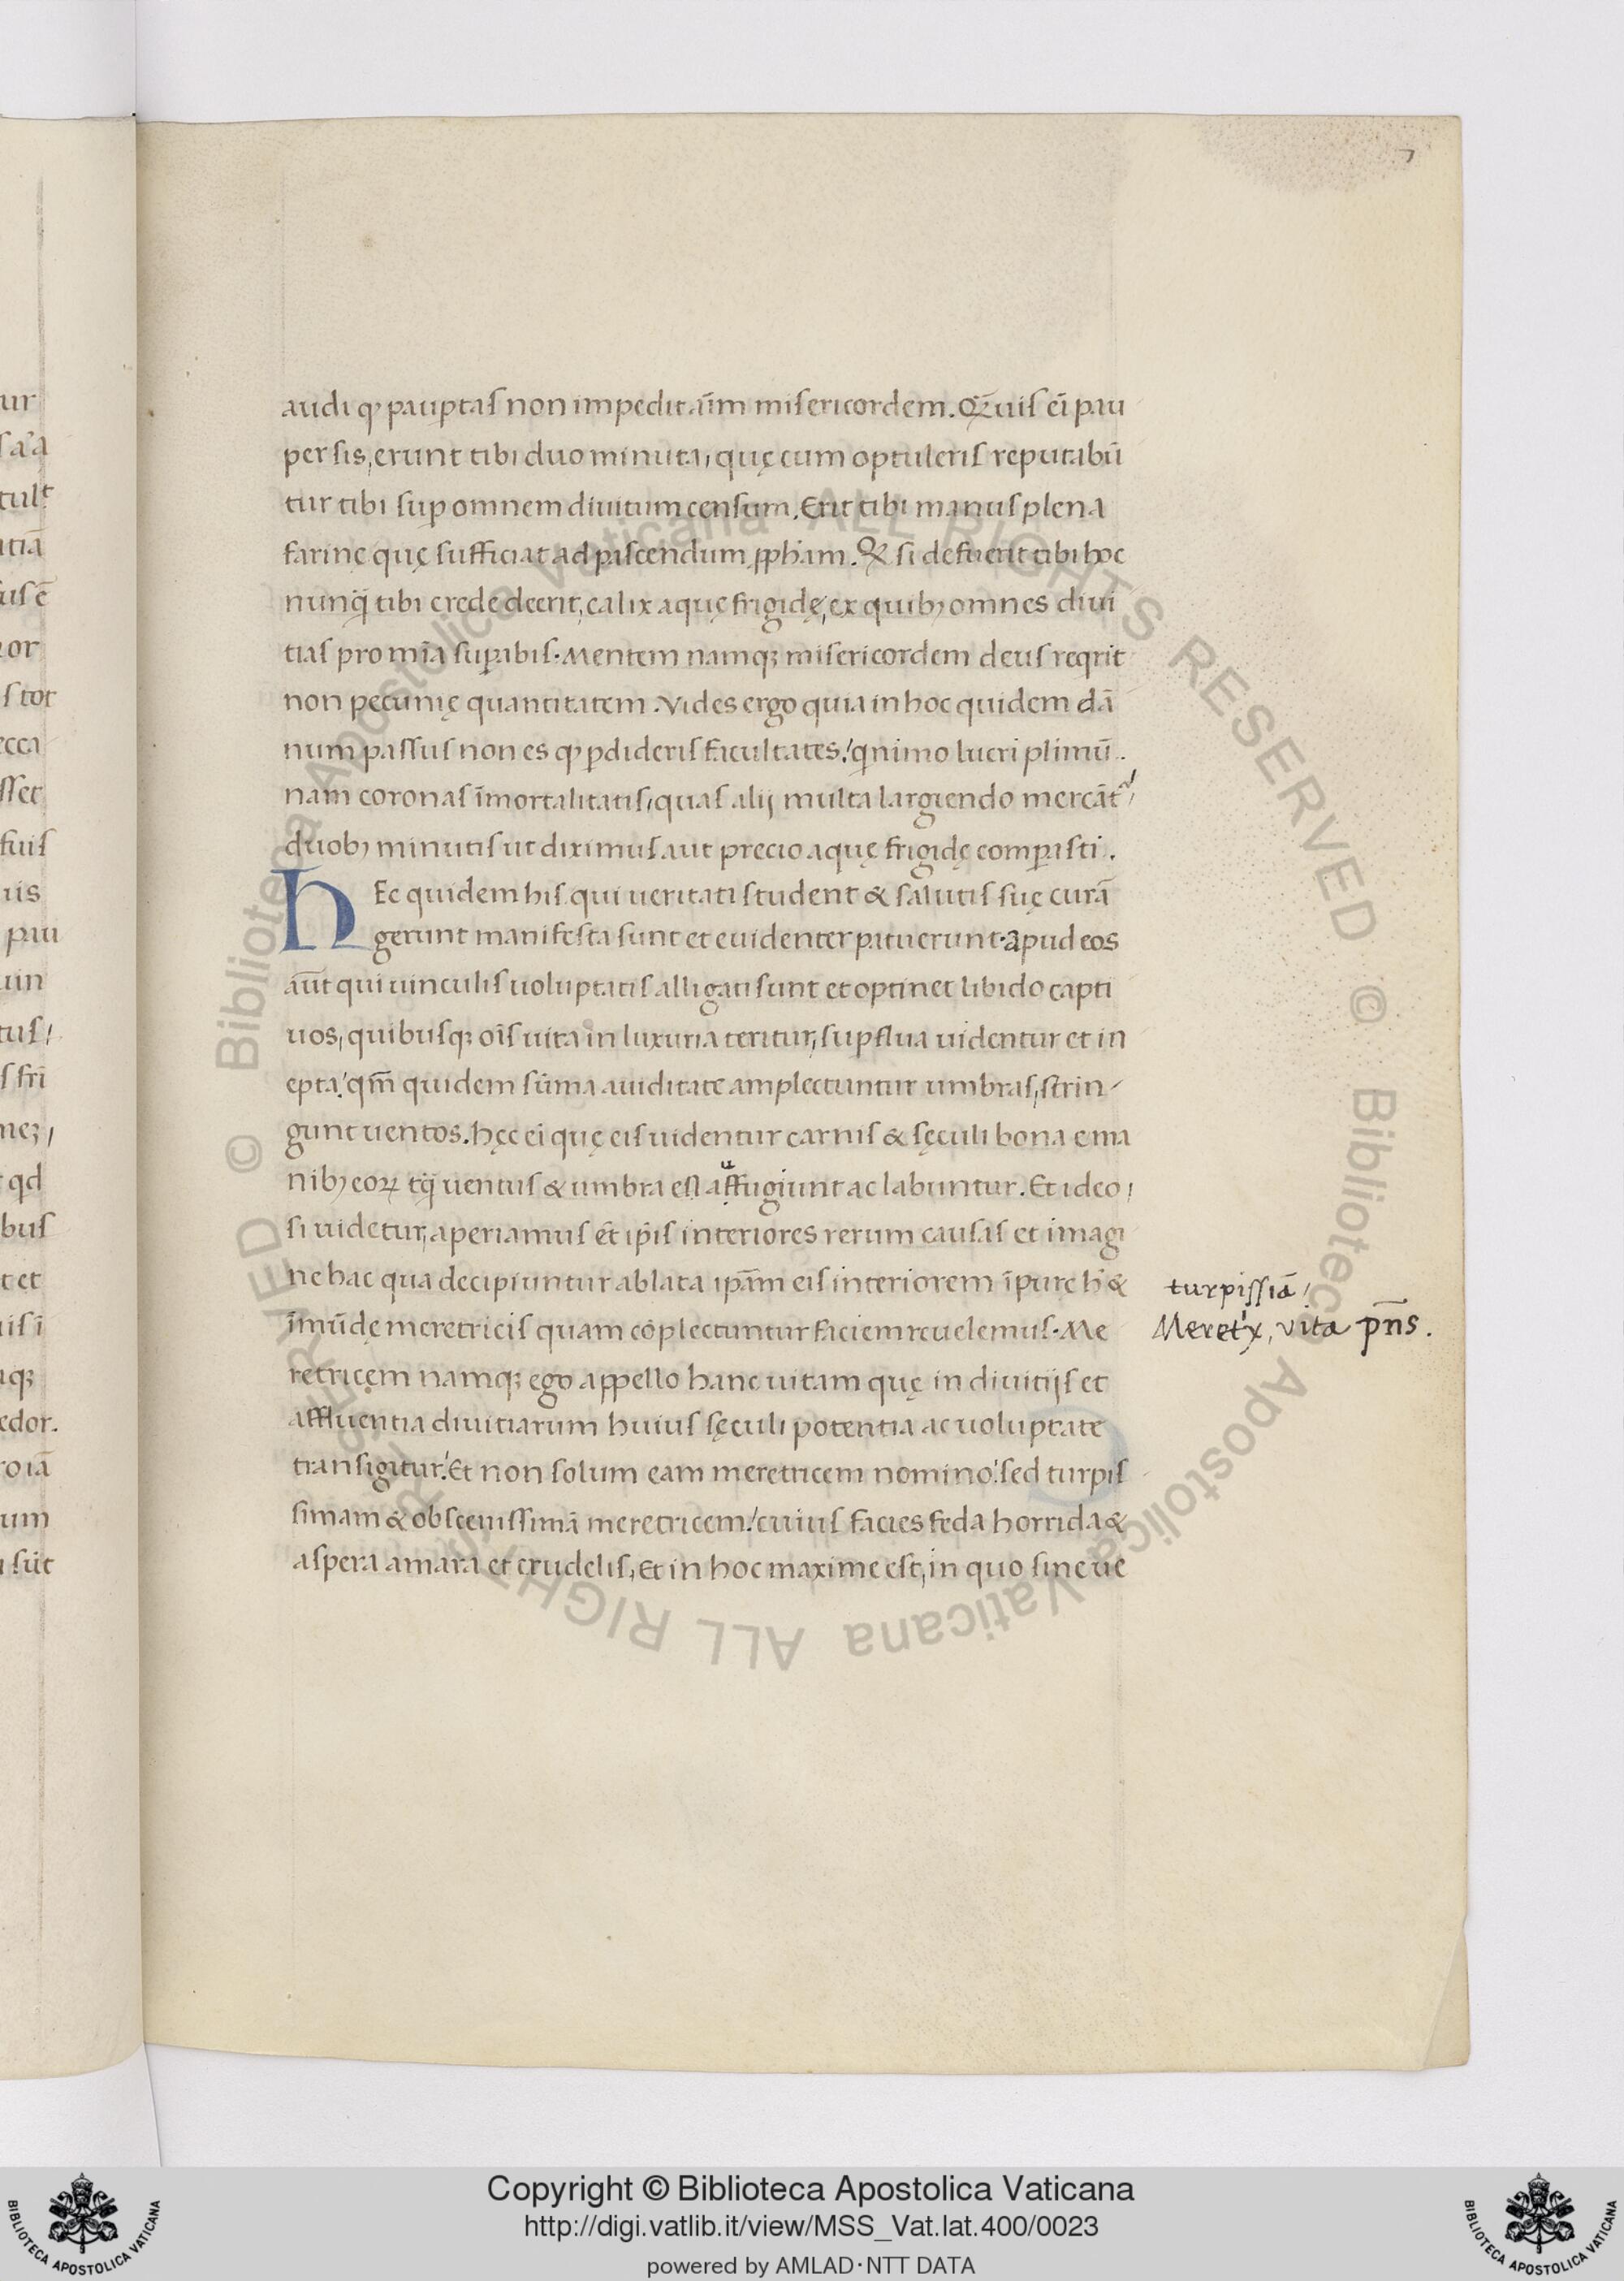 7
audi ꝙ paupṭas non impedit aīm misericordem. Q̄uis ei̅ pau
per sis, erunt tibi duo minuta, quę cum optuleris reputabū
tur tibi sup omnem diuitum censum. Erit tibi manus plena
farinę quę sufficiat ad pascendum ꝓpham. Qď si defuerit tibi hoc
nunq̄ tibi crede deerit, calix aquę frigidę, ex quibꝫ omnes diui
tias pro mīa suꝑabis. Mentem namqꝫ misericordem deus reqrit
non pecunię quantitatem. Vides ergo quia in hoc quidem dā
num passus non es ꝙ ꝑdideris facultates: qnimo lucri plimū.
nam coronas īmortalitatis, quas alij multa largiendo mercāt˜
duobꝫ minutis ut diximus aut precio aquę frigidę comꝑasti.
HEc quidem his qui ueritati student & salutis suę curā
gerunt manifesta sunt et euidenter patuerunt. Apud eos
aūt qui uinculis uoluptatis alligati sunt et optinet libido capti
uos, quibusqꝫ oīs uita in luxuria teritur, supflua uidentur et in
epta: qm̄ quidem sūma auiditate amplectuntur umbras, strin-
gunt uentos. hęc ei̅ quę eis uidentur carnis & sęculi bona e ma
nibꝫ eoꝝ tq̄ uentus & umbra essent affugiunt ac labuntur. Et ideo,
si uidetur, aperiamus et̄ ip̄is interiores rerum causas et imagi
ne hac qua decipiuntur ablata ip̄am eis interiorem īpure hˈ &
īmūdę meretricis quam cōplectuntur faciem reuelemus. Me
retricem namqꝫ ego appello hanc uitam quę in diuitijs et
affluentia diuitiarum huius sęculi potentia ac uoluptate
transigitur: Et non solum eam meretricem nomino: sed turpis
simam & obscenissimā meretricem: cuius facies feda horrida &
aspera amara et crudelis, Et in hoc maxime est, in quo sine ue
turpissiā,
Meret'x, vita p̄ns.
Copyright © Biblioteca Apostolica Vaticana
http://digi.vatlib.it/view/MSS_Vat.lat.400/0023
powered by AMLAD·NTT DATA
BIBLIOTECA APOSTOLICA VATICANA
BIBLIOTECA APOSTOLICA VATICANA
© Biblioteca Apostolica Vaticana ALL RIGHTS RESERVED © Biblioteca Apostolica Vaticana ALL RIGHTS RESERVED